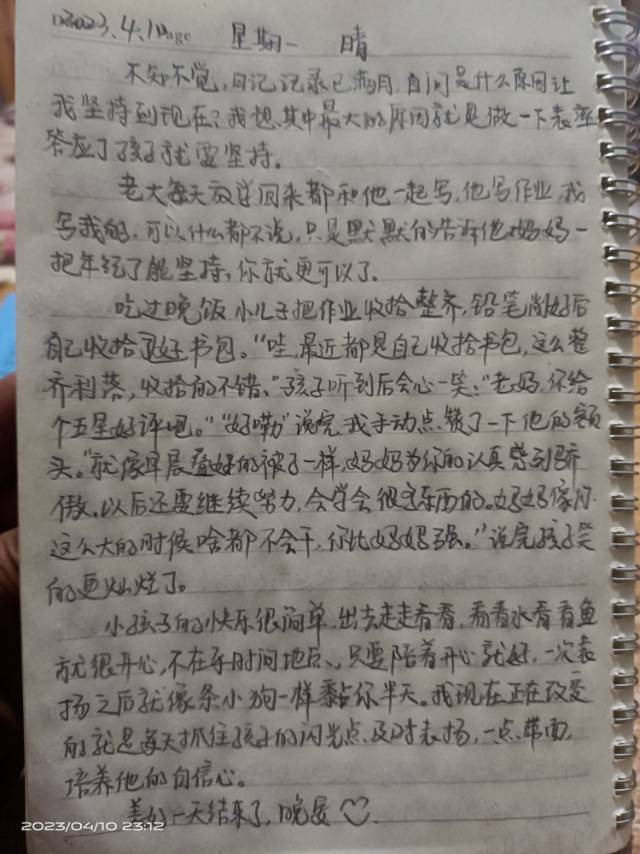 2023.4.10 星期一 晴
不知不觉,日记记录已满月,自问是什么原因让
我坚持到现在?我想其中最大的原因就是做一下表率
答应了孩子就要坚持。
老大每天放学回来都和他一起写,他写作业,我
写我的,可以什么都不说,只是默默的告诉他妈妈一
把年纪了能坚持,你就更可以了.
吃过晚饭小儿子把作业收拾整齐,铅笔削好后
自己收拾好书包。“哇,最近都是自己收拾书包,这么整
齐利落,收拾的不错、”孩子听到后会心一笑:“老妈,你给
个五星好评吧。”“好嘞”说完我手动点赞了一下他的额
头。“就像早晨叠好的被子一样,妈妈为你的认真感到骄
傲,以后还要继续努力,会学会很多东西的。妈妈像你
这么大的时候啥都不会干,你比妈妈强。”说完孩子笑
的更灿烂了。
小孩子的快乐很简单,出去走走看看,看看水看看鱼
就很开心,不在乎时间地点、只要陪着开心就好,一次表
扬之后就像条小狗一样黏你半天。我现在正在改变
的就是每天抓住孩子的闪光点、及时表扬,一点带面,
培养他的自信心。
美好一天结束了,晚安
2023/04/10 23:12